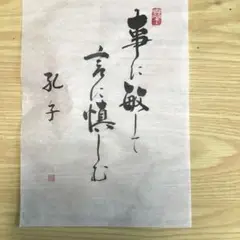 事に敏して
言に慎しむ
孔子